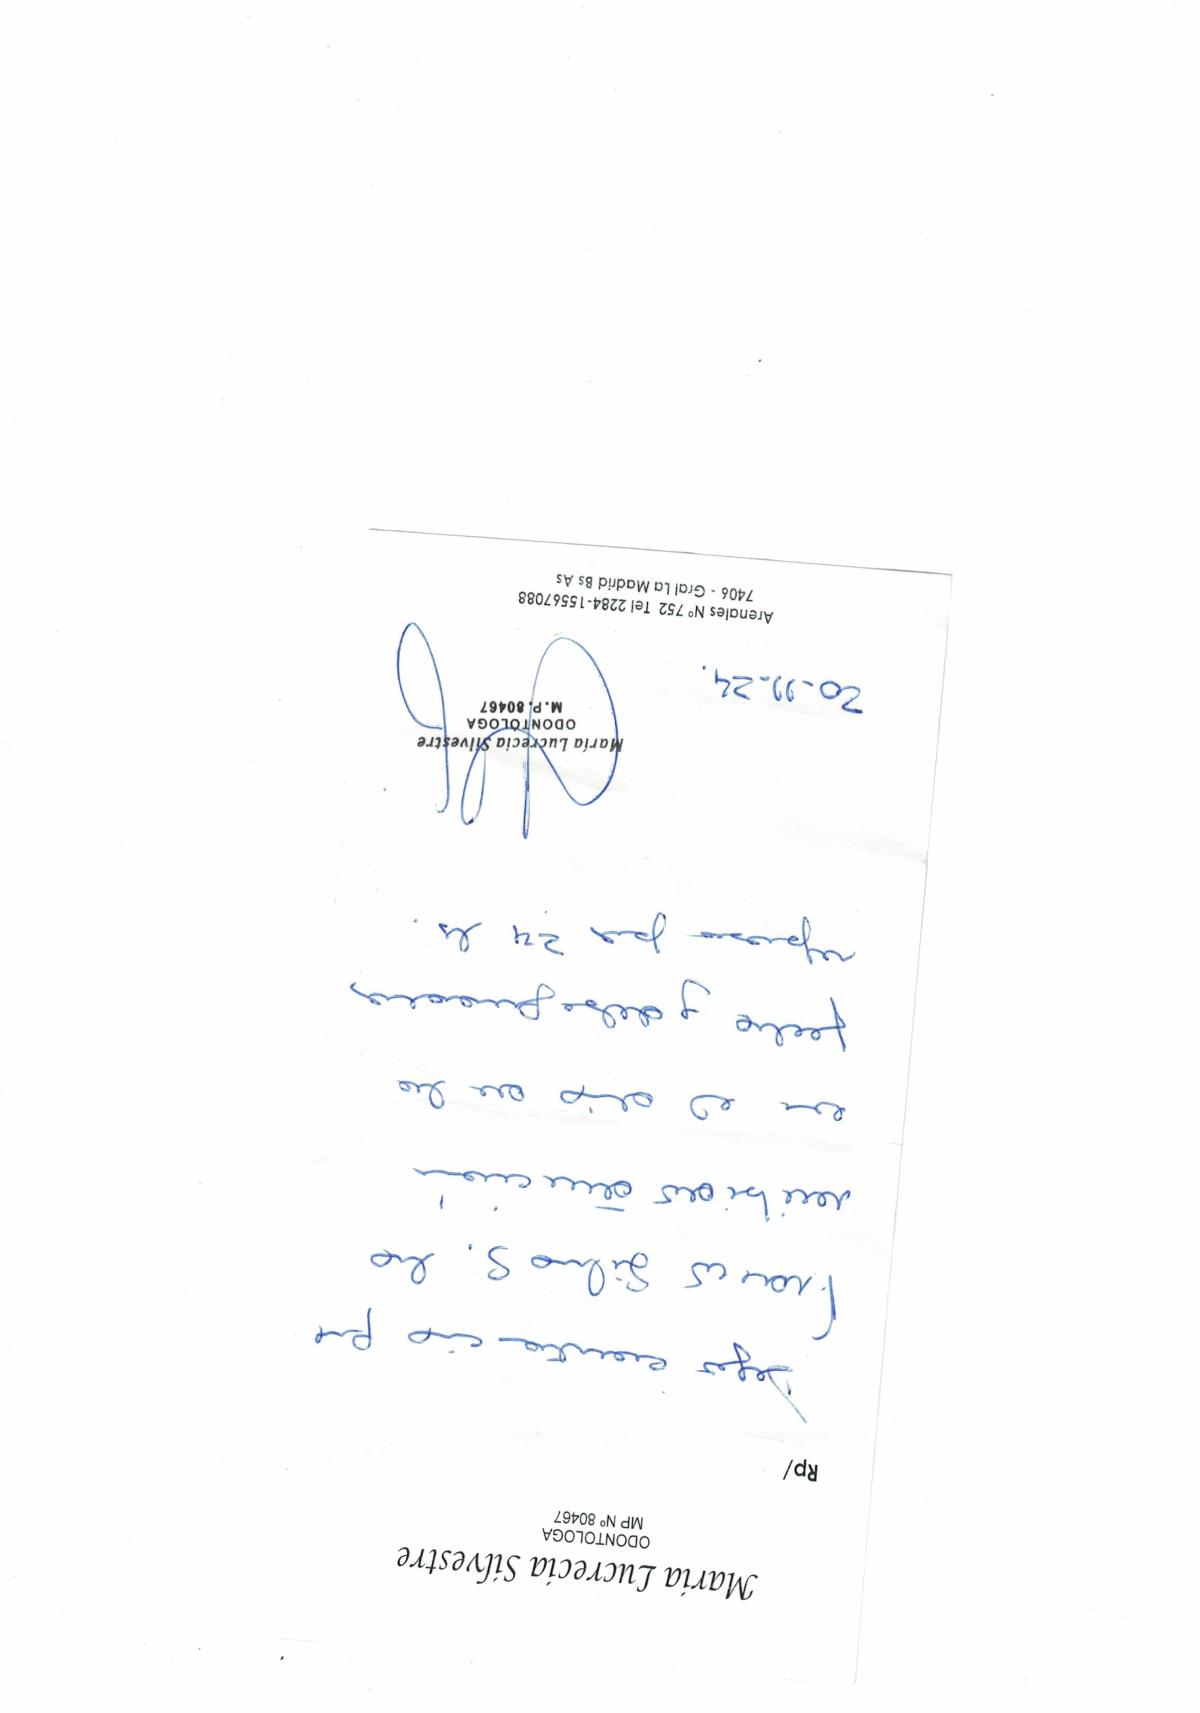 María Lucrecia Silvestre
ODONTOLOGA
MP Nº 80467
Rp/
Dejo constancia que
Silva S. ha
recibido atención
en el día de la
fecha y debe guardar
reposo por 24 hs.
María Lucrecia Silvestre
ODONTÓLOGA
M.P. 80467
20-11-24.
Arenales Nº 752 Tel 2284-15567088
7406 - Gral La Madrid Bs As